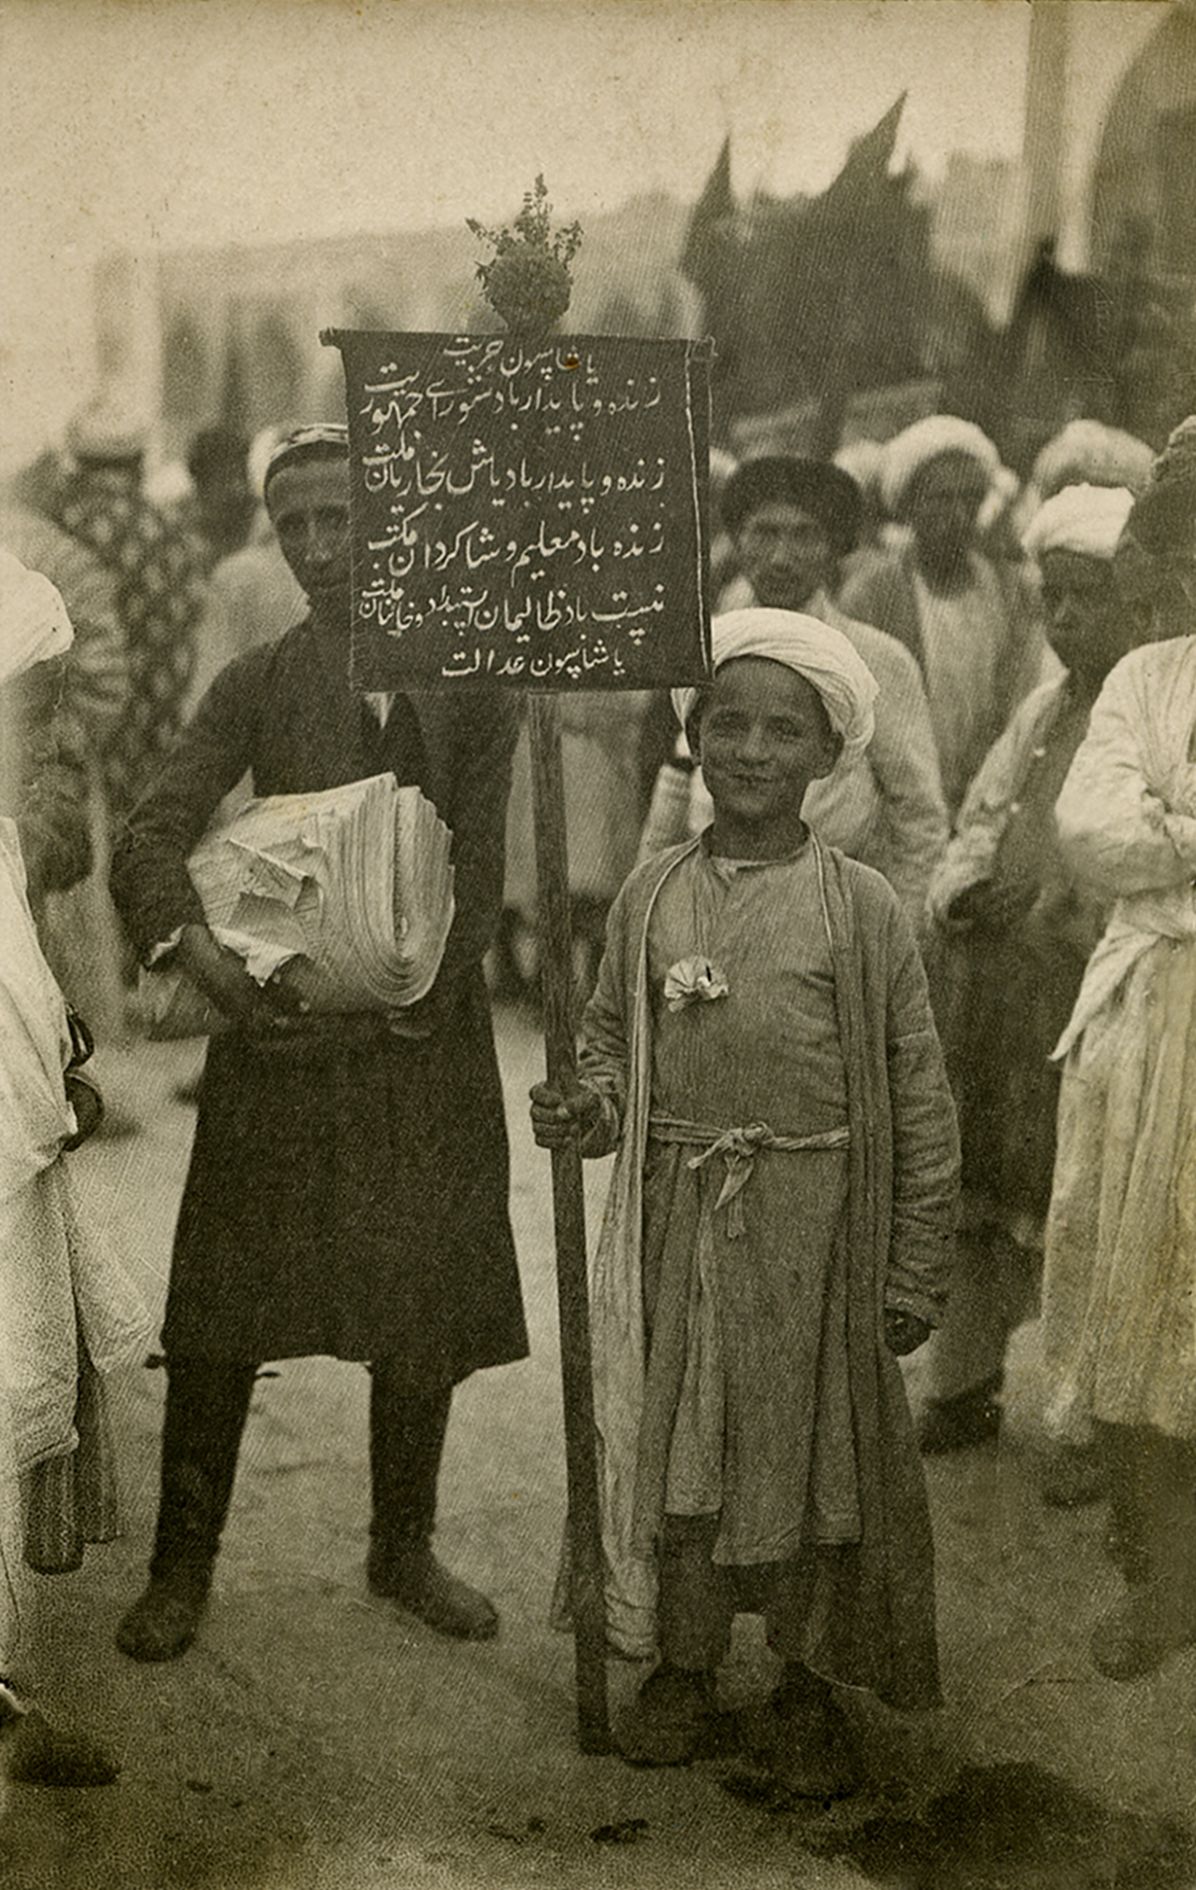 یاشاسون حریت
زنده و پایدار باد شورای جمهوریت
زنده و پایدار باد یاش بخاریان ملت
زنده باد معلیم و شاکردان مکتب
نیست باد ظالیمان استبداد و خاینان ملت
یاشاسون عدالت